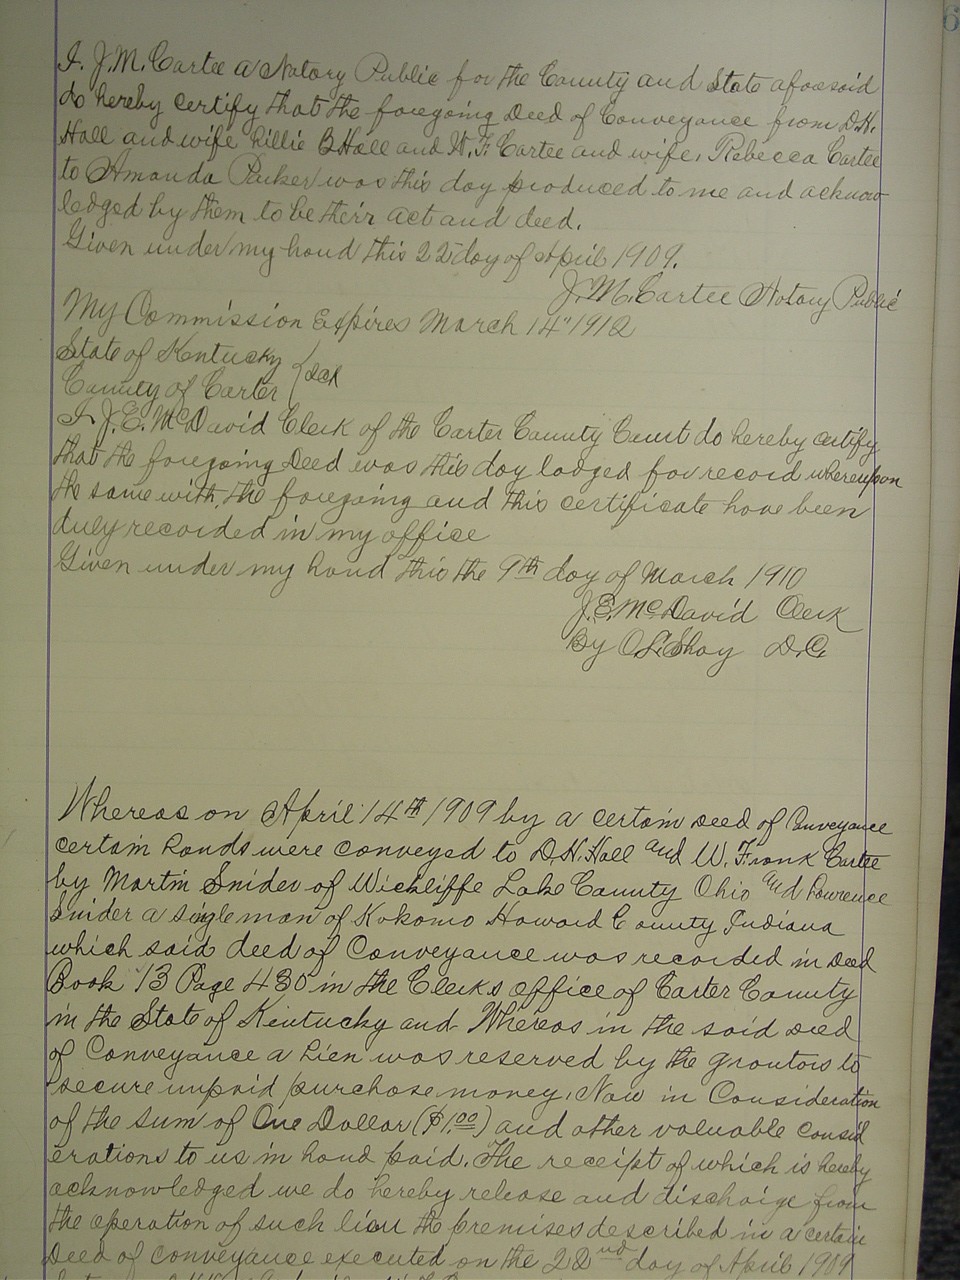 I. J.M. Cartee a Notary Public for the County and State aforesaid
do hereby certify that the foregoing Deed of Conveyance from D.H.
Hall and wife Lillie B Hall and W. F. Cartee and wife, Rebecca Cartee
to Amanda Parker was this day produced to me and acknow
ledged by them to be their act and deed.
Given under my hand this 22 day of April 1909.
J.M. Cartee Notary Public
My Commission Expires March 14" 1912
State of Kentucky
County of Carter } Sct
I. J.E. McDavid Clerk of the Carter County Court do hereby certify
that the foregoing Deed was this day lodged for record whereupon
the same with, the foregoing and this certificate have been
duly recorded in my office
Given under my hand this the 9th day of March 1910
J.E. McDavid Clerk
By D.C.
Whereas on April 14th 1909 by a certain deed of Conveyance
certain Lands were conveyed to D.H. Hall and W. Frank Cartee
by Martin Snider of Wickliffe Lake County Ohio and Lawrence
Snider a single man of Kokomo Howard County Indiana
which said deed of Conveyance was recorded in Deed
Book 13 Page 430 in the Clerks office of Carter County
in the State of Kentucky and Whereas in the said deed
of Conveyance a Lien was reserved by the grantors to
secure unpaid purchase money, Now in Consideration
of the sum of One Dollar ($1.00) and other valuable consid
erations to us in hand paid. The receipt of which is hereby
acknowledged we do hereby release and discharge from
the operation of such lien the premises described in a certain
Deed of conveyance executed on the 22nd day of April 1909